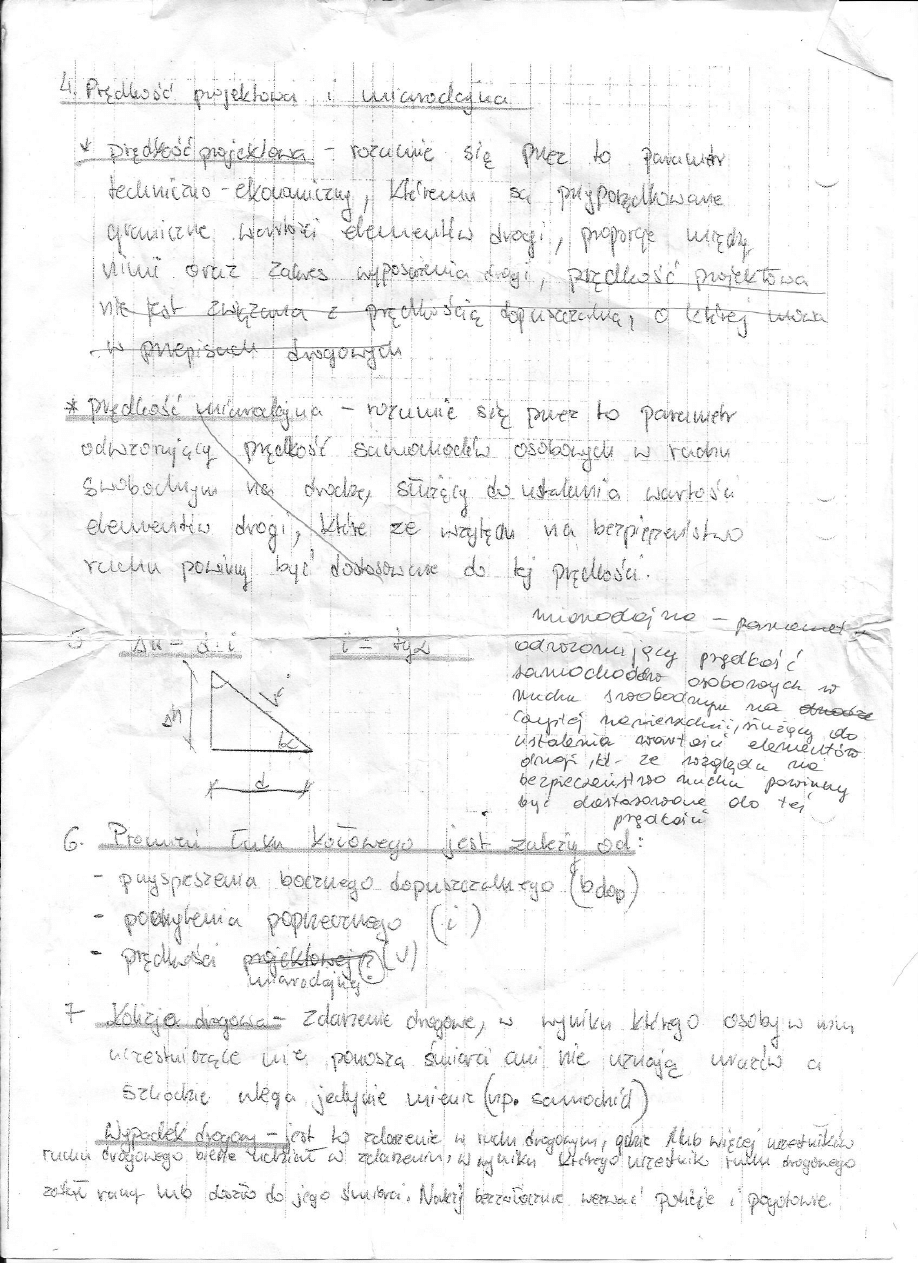 4. Prędkość projektowa i miarodajna
* prędkość projektowa - rozumie się przez to parametr
techniczno-ekonomiczny, któremu są przyporządkowane
graniczne wartości elementów drogi, proporcje między
nimi oraz zakres wyposażenia drogi, prędkość projektowa
nie jest związana z prędkością dopuszczalną, o której mowa
w przepisach drogowych
* prędkość miarodajna - rozumie się przez to parametr
odwzorujący prędkość samochodów osobowych w ruchu
swobodnym na drodze, służący do ustalenia wartości
elementów drogi, które ze względu na bezpieczeństwo
ruchu powinny być dostosowane do tej prędkości.
5 Δh = d·i i = tgα
Δh
α
d
miarodajna - parametr
odwzorujący prędkość
samochodów osobowych w
ruchu swobodnym na drodze
czystej nawierzchni, służący do
ustalenia wartości elementów
drogi, kt- ze względu na
bezpieczeństwo ruchu powinny
być dostosowane do tej
prędkości
6. Promień łuku kołowego jest zależy od:
- przyspieszenia bocznego dopuszczalnego (bdop)
- pochylenia poprzecznego (i)
- prędkości projektowej (?) (V)
miarodajnej
7 Kolizja drogowa - zdarzenie drogowe, w wyniku którego osoby w nim
uczestniczące nie ponoszą śmierci ani nie uznają urazów a
szkodzie ulega jedynie mienie (np. samochód)
Wypadek drogowy - jest to zdarzenie w ruchu drogowym, gdzie 1 lub więcej uczestników
ruchu drogowego bierze udział w zdarzeniu, w wyniku którego uczestnik ruchu drogowego
został ranny lub doszło do jego śmierci. Należy bezzwłocznie wezwać policję i pogotowie.